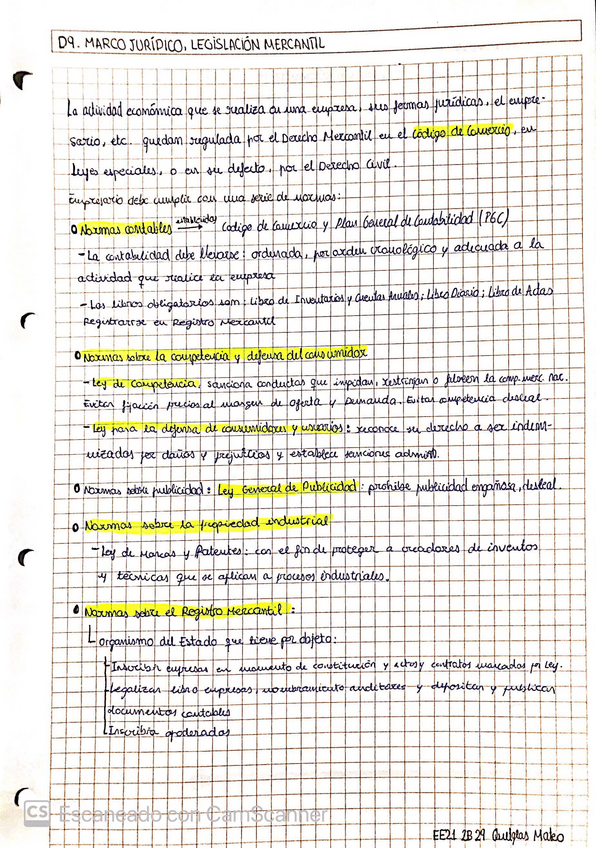 D9. MARCO JURÍDICO, LEGISLACIÓN MERCANTIL
La actividad económica que se realiza en una empresa, sus formas jurídicas, el empre-
sario, etc. quedan regulada por el Derecho Mercantil en el Código de Comercio, en
leyes especiales, o en su defecto, por el Derecho Civil.
Empresario debe cumplir con una serie de normas:
Normas contables establecidas → Código de Comercio y Plan General de Contabilidad (PGC)
- La contabilidad debe llevarse: ordenada, por orden cronológico y adecuada a la
actividad que realice la empresa
- Los libros obligatorios son: Libro de Inventarios y Cuentas Anuales; Libro Diario; Libro de Actas
Registrarse en Registro Mercantil
Normas sobre la competencia y defensa del consumidor
- Ley de Competencia, sanciona conductas que impidan, restrinjan o falseen la comp. merc. nac.
Evitar fijación precios al margen de oferta y Demanda. Evitar competencia desleal.
- Ley para la defensa de consumidores y usuarios: reconoce su derecho a ser indem-
nizados por daños y prejuicios y establece sanciones admin.
Normas sobre publicidad: Ley General de Publicidad: prohibe publicidad engañosa, desleal.
Normas sobre la propiedad industrial
- Ley de Marcas y Patentes: con el fin de proteger a creadores de inventos
y técnicas que se aplican a procesos industriales.
Normas sobre el Registro Mercantil:
Organismo del Estado que tiene por objeto:
- Inscribir empresas en momento de constitución y actos y contratos marcados por ley.
- Legalizar libro empresas, nombramiento auditores y depositar y publicar
documentos contables
- Inscribir apoderados
CS Escaneado con CamScanner
EE21 2B 29 Mateo